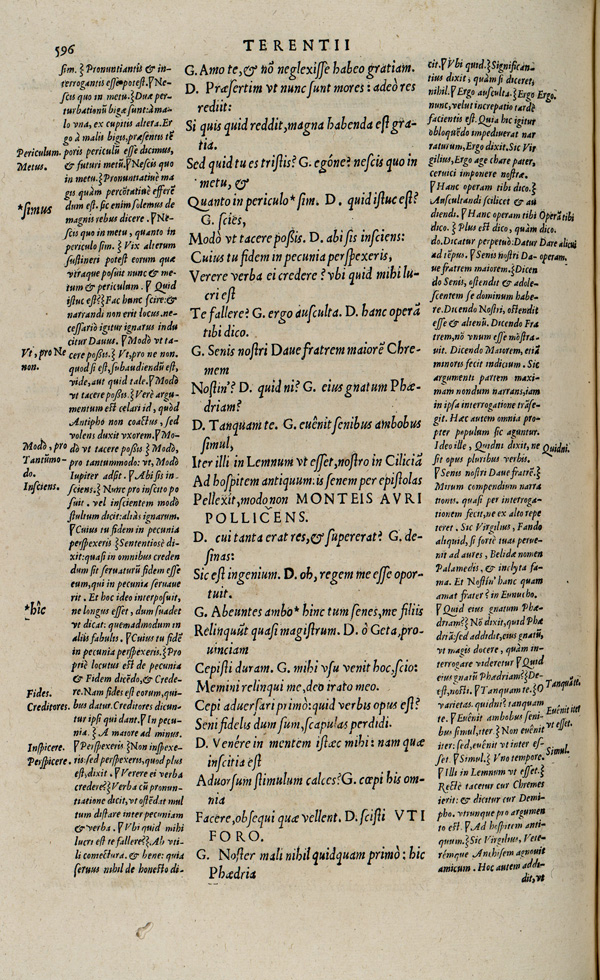 596
TERENTII
ſim. ⁅Pronuntiantis & in-
terrogantis eſſe poteſt. ⁋Ne-
ſcis quo in metu.⁆Duæ per-
turbationū bigæ ſunt: à ma-
lo vna, ex cupitis altera. Er
go à malis bigis, præſentis tē
Periculum. poris periculū eſſe dicimus,
Metus. & futuri metū.⁋Neſcis quo
in metu.⁆Pronuntiatiuè ma
gis quàm percōtatiuè efferē
*ſimus dum eſt. ſic enim ſolemus de
magnis rebus dicere. ⁋Ne-
ſcis quo in metu, quanto in
periculo ſim. ⁆ Vix alterum
ſuſtineri poteſt eorum quæ
vtraque poſuit nunc & me-
tum & periculum. ⁋ Quid
iſtuc eſt?⁆Fac hunc ſcire:&
narrandi non erit locus. ne-
ceſſariò igitur ignarus indu
citur Dauus. ⁋Modò vt ta-
Vt, pro Ne cere poßis.⁆ Vt, pro ne non.
non. quod ſi eſt, ſubaudiendū eſt,
vide, aut quid tale.⁋Modò
vt tacere poßis.⁆Verè argu-
mentum eſt celari id, quòd
Antipho non coactus, ſed
volens duxit vxorem.⁋Mo-
Modò, pro dò vt tacere poßis ⁆ Modò,
Tantūmo- pro tantummodo: vt, Modò
do. Iupiter adſit. ⁋Abi ſis in-
Inſciens. ſciens.⁆Nunc pro inſcito po
ſuit. vel inſcientem modò
ſtultum dicit: aliàs ignarum.
⁋Cuius tu fidem in pecunia
perſpexeris ⁆Sententioſè di-
xit: quaſi in omnibus creden
dum ſit ſeruaturū fidem eſſe
eum, qui in pecunia ſeruaue
rit. Et hoc ideo interpoſuit,
*hîc ne longus eſſet, dum ſuadet
vt dicat: quemadmodum in
aliis fabulis. ⁋Cuius tu fidē
in pecunia perſpexeris.⁆Pro
priè locutus eſt de pecunia
& Fidem dicēdo, & Crede-
Fides. re. Nam fides eſt eorum, qui-
Creditores. bus datur. Creditores dicun-
tur ipſi qui dant. ⁋In pecu-
nia. ⁆ A maiore ad minus.
Inſpicere. ⁋Perſpexeris ⁆Non inſpexe-
Perſpicere. ris: ſed perſpexeris, quod plus
eſt, dixit. ⁋Verere ei verba
credere?⁆Verba cū pronun-
tiatione dicit, vt oſtēdat mul
tum diſtare inter pecuniam
& verba. ⁋Vbi quid mihi
lucri eſt te fallere?⁆Ab vti-
li coniectura. & bene: quia
ſeruus nihil de honeſto di-
G. Amo te, & nō neglexiſſe habeo gratiam.
D. Præſertim vt nunc ſunt mores: adeò res
rediit:
Si quis quid reddit, magna habenda eſt gra-
tia.
Sed quid tu es triſtis? G. egóne? neſcis quo in
metu, &
Quanto in periculo * ſim. D. quid iſtuc eſt?
G. ſcies,
Modò vt tacere poßis. D. abi ſis inſciens:
Cuius tu fidem in pecunia perſpexeris,
Verere verba ei credere? vbi quid mihi lu-
cri eſt
Te fallere? G. ergo auſculta. D. hanc operā
tibi dico.
G. Senis noſtri Daue fratrem maiorē Chre-
mem
Noſtin'? D. quid ni? G. eius gnatum Phæ-
driam?
D. Tanquam te. G. euênit ſenibus ambobus
ſimul,
Iter illi in Lemnum vt eſſet, noſtro in Ciliciā
Ad hoſpitem antiquum: is ſenem per epiſtolas
Pellexit, modo non MONTEIS AVRI
POLLICENS.
D. cui tanta erat res, & ſupererat? G. de-
ſinas:
Sic eſt ingenium. D. oh, regem me eſſe opor-
tuit.
G. Abeuntes ambo * hinc tum ſenes, me filiis
Relinquūt quaſi magiſtrum. D. ô Geta, pro-
uinciam
Cepiſti duram. G. mihi vſu venit hoc, ſcio:
Memini relinqui me, deo irato meo.
Cepi aduerſari primò: quid verbis opus eſt?
Seni fidelis dum ſum, ſcapulas perdidi.
D. Venêre in mentem iſtæc mihi: nam quæ
inſcitia eſt
Aduorſum ſtimulum calces? G. cœpi his om-
nia
Facere, obſequi quæ vellent. D. ſciſti VTI
FORO.
G. Noſter mali nihil quidquam primò: hic
Phædria
cit. ⁋Vbi quid. ⁆Significan-
tius dixit, quàm ſi diceret,
nihil. ⁋Ergo auſculta.⁆Ergo Ergo.
nunc, velut increpatio tardè
facientis eſt. Quia hic igitur
obloquēdo impedieratur nar
raturum, Ergo dixit. Sic Vir
gilius, Ergo age chare pater,
ceruici imponere noſtræ.
⁋Hanc operam tibi dico.⁆
Auſcultandi ſcilicet & au
diendi. ⁋Hanc operam tibi Operā tibi
dico. ⁆ Plus eſt dico, quàm dico.
do. Dicatur perpetuò: Datur Dare alicui
ad tēpus. ⁋Senis noſtri Da- operam.
ue fratrem maiorem.⁆Dicen
do Senis, oſtendit & adole-
ſcentem ſe dominum habe-
re. Dicendo Noſtri, oſtendit
eſſe & alienū. Dicendo Fra
trem, nō vnum eſſe mōſtra-
uit. Dicendo Maiorem, etiā
minoris fecit indicium. Sic
argumenti partem maxi-
mam nondum narrans, iam
in ipſa interrogatione trāſe-
git. Hæc autem omnia pro-
pter populum ſic aguntur.
Ideo ille, Quidni dixit, ne Quidni.
ſit opus pluribus verbis.
⁋Senis noſtri Daue fratrē.⁆
Mirum compendium narra
tionis. quaſi per interroga-
tionem fecit, ne ex alto repe
teret. Sic Virgilius, Fando
aliquid, ſi fortè tuas perue-
nit ad aures, Belidæ nomen
Palamedis, & inclyta fa-
ma. Et Noſtin' hanc quam
amat frater? in Eunucho.
⁋Quid eius gnatum Phæ-
driam?⁆Nō dixit, quid Phæ
driā: ſed addidit, eius gnatū,
vt magis docere, quàm in-
terrogare videretur ⁋Quid
eius gnatū Phædriam?⁆De-
eſt, noſti. ⁋Tanquam te.⁆O Tanquā te.
varietas. quidni? tanquam
te. ⁋Euênit ambobus ſeni- Euênit iter
bus ſimul, iter. ⁆ Non euênit vt eſſet.
iter: ſed, euênit vt inter eſ-
ſet. ⁋Simul.⁆ Vno tempore. Simul.
⁋ Illi in Lemnum vt eſſet.⁆
Rectè tacetur cur Chremes
ierit: & dicitur cur Demi-
pho. vtrunque pro argumen
to eſt. ⁋Ad hoſpitem anti-
quum.⁆Sic Virgilius, Vete-
rémque Anchiſem agnouit
amicum. Hoc autem addi-
dit, vt